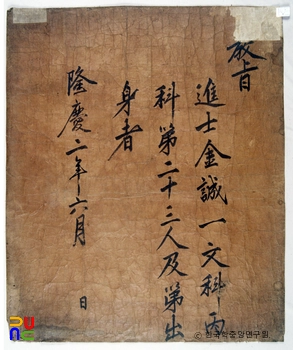 敎旨
進士金誠一文科丙
科第二十三人及第出
身者
隆慶二年六月 日
© 한국학중앙연구원